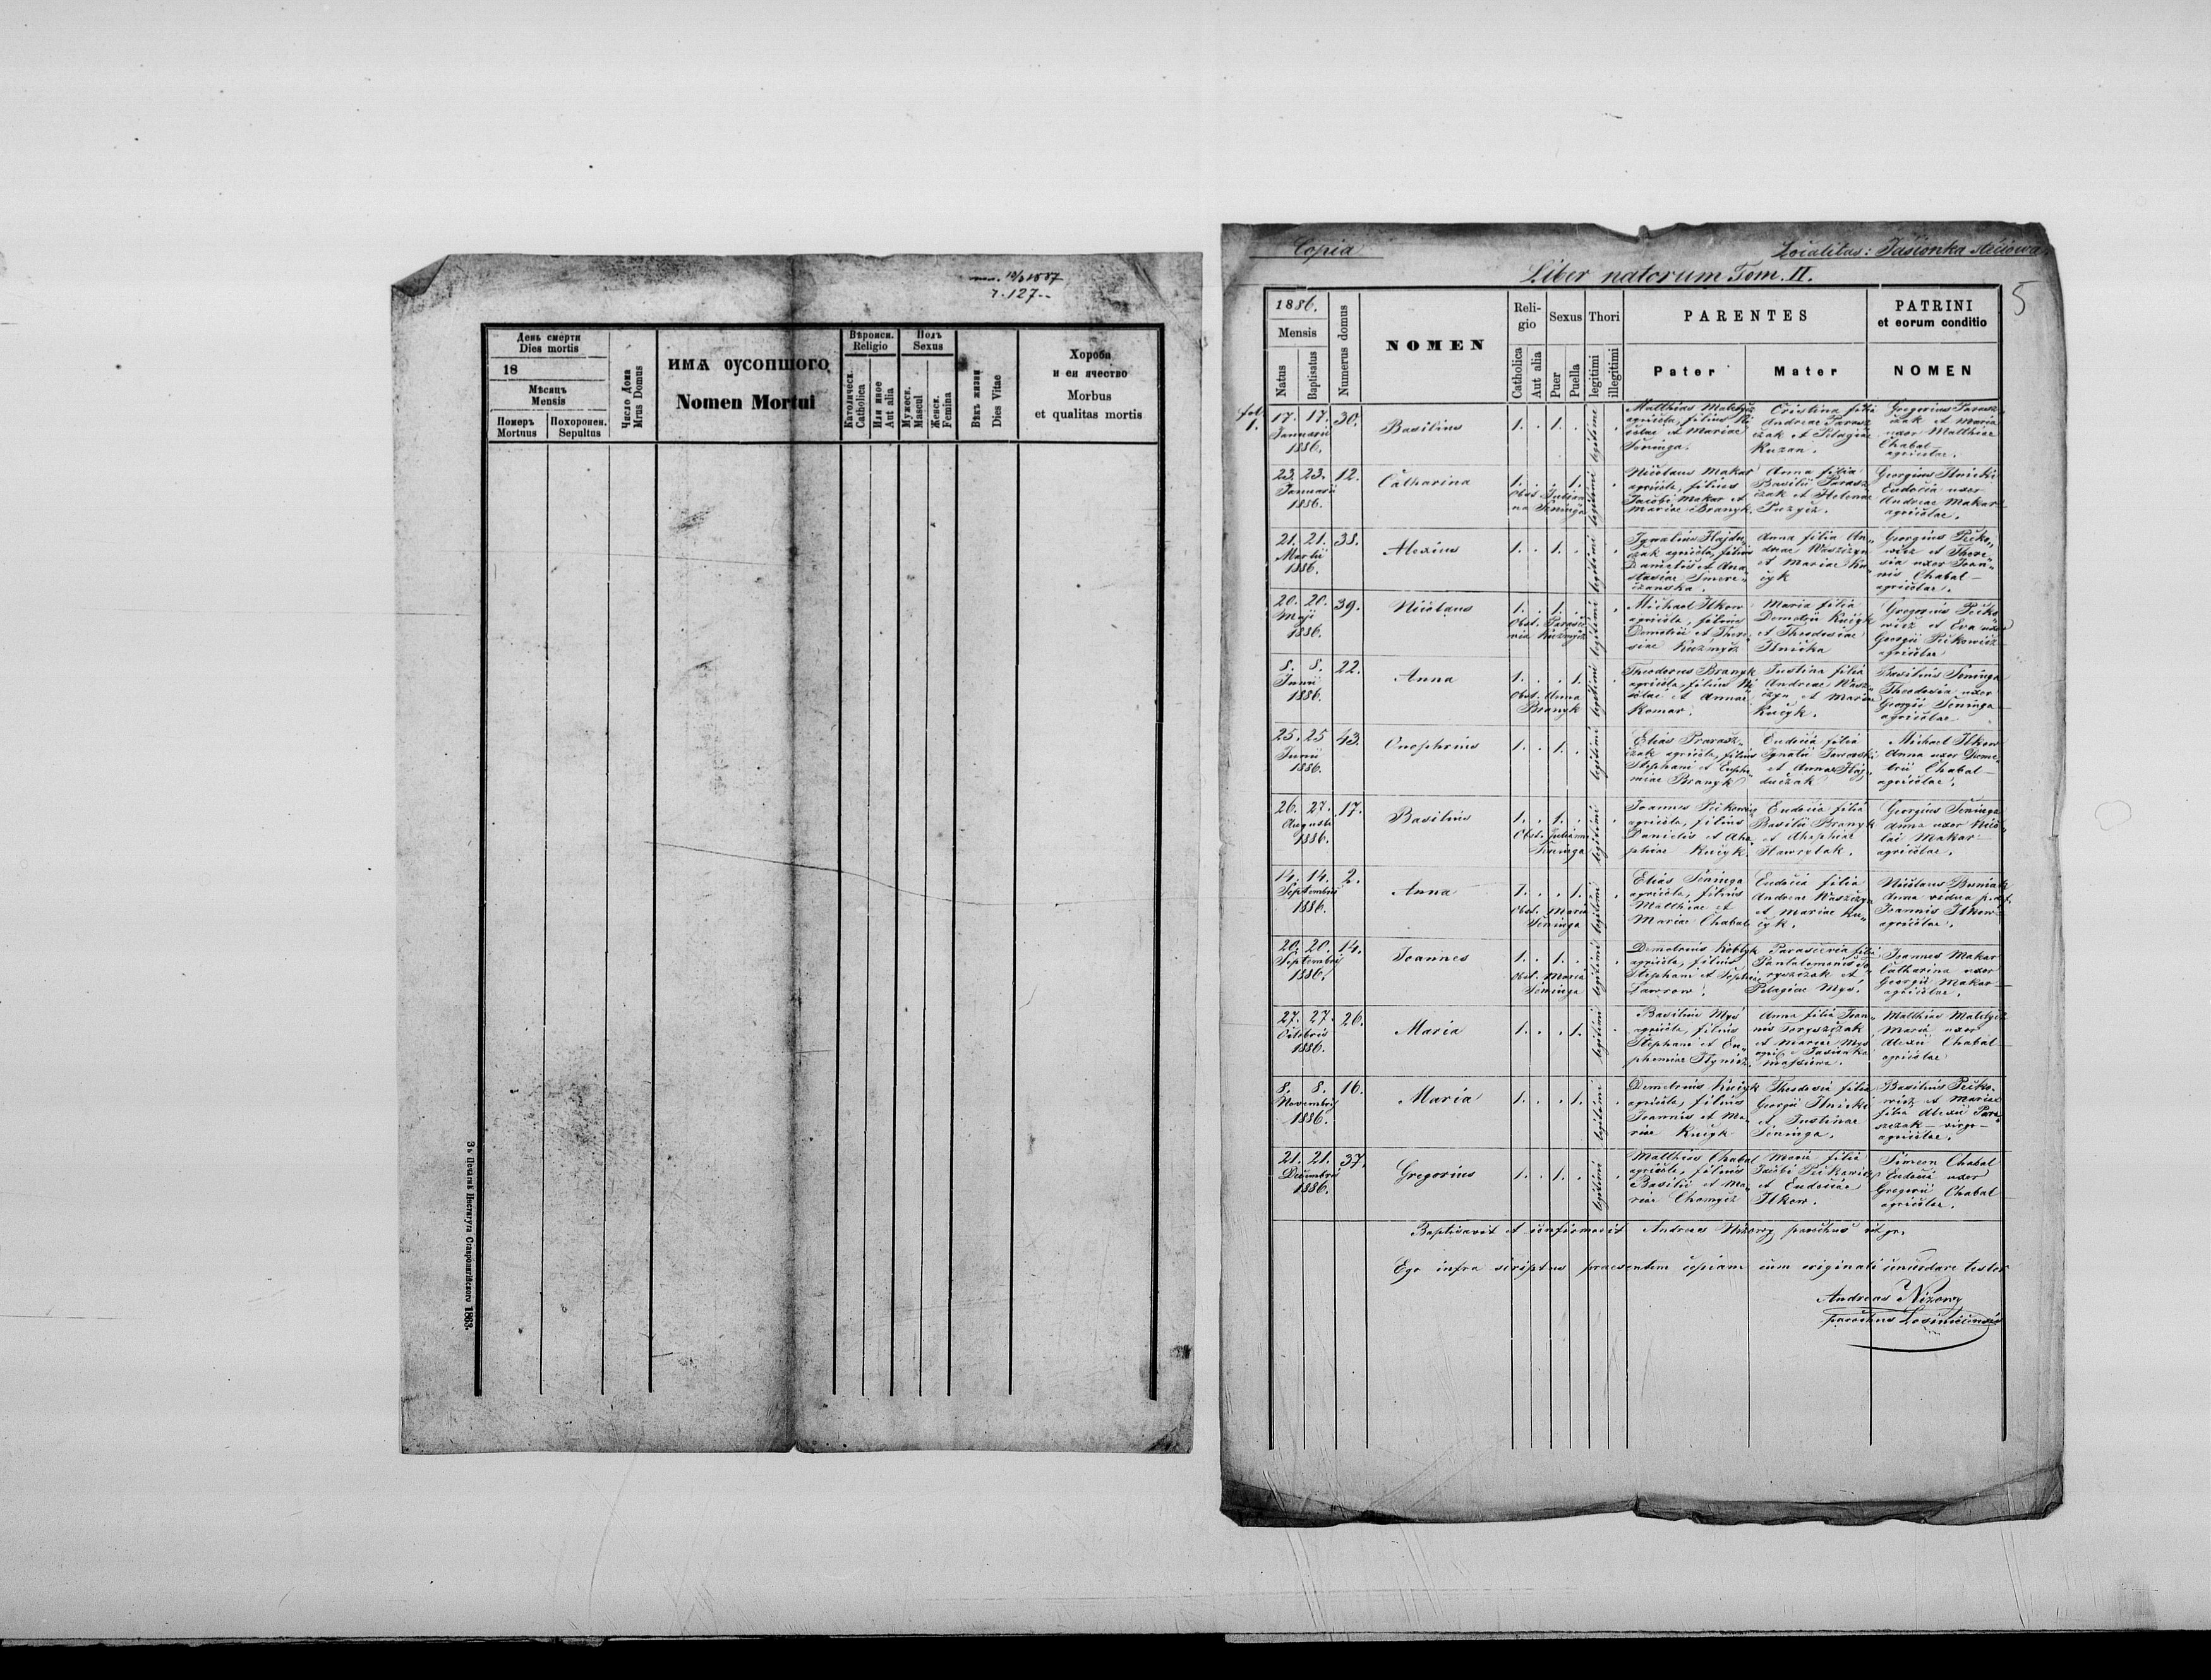 10/3 1887
r. 127
День смерти
Dies mortis
18
Мѣсяцъ
Mensis
Померъ
Mortuus
Похоронен.
Sepultus
Число дома
Nrus Domus
ИМѦ ОУСОПШОГО
Nomen Mortui
Вѣроисп.
Religio
Католическ.
Catholica
Или иное
Aut alia
Полъ
Sexus
Мужеск.
Mascul
Женск.
Femina
Вѣкъ жизни
Dies Vitae
Хороба
и еи качество
Morbus
et qualitas mortis
Зъ Печатнѣ Института Ставропигійского 1863.
Copia
Localitas: Jasionka steciowa.
Liber natorum Tom. II.
5
1886.
Mensis
Natus
Baptisatus
Numerus domus
NOMEN
Religio
Catholica
Aut alia
Sexus
Puer
Puella
Thori
legitimi
illegitimi
PARENTES
Pater
Mater
PATRINI
et eorum conditio
NOMEN
fol. 1.
17. 17. Januarii 1886.
30.
Basilius
1. . 1. .
legitimi
agricola, filius
et Mariae
Seninga.
Cristina filia
Andreae Parasz
czak et Pelagiae
Kuzan.
Gregorius Parasz
czak et Maria
uxor Matthiae
Chabal
agricolae.
23. 23. Januarii 1886.
12.
Catharina
1. . . 1.
Obst. Juliana Seninga
legitimi
Nicolaus Makar
agricola, filius
Jacobi Makar et
Mariae Branyk.
Anna filia
Basilii Parasz
czak et Helenae
Puzyiz.
Georgius Ilnicki
Eudocia uxor
Andreae Makar
agricolae.
21. 21. Martii 1886.
38.
Alexius
1. . 1. .
legitimi
Ignatius Hajdu
czak agricola, filius
Danielis et Ana
stasiae
Anna filia An
dreae Waszczyn
et Mariae Ku
cyk
Georgius Pećko
wicz et There
sia uxor Joan
nis Chabal
agricolae.
20. 20. Maji 1886.
39.
Nicolaus
1. . 1. .
legitimi
Michael Ilkow
agricola, filius
Demetrii et There
siae Kuzmycz
Maria filia
Demetrii Kucyk
et Theodosiae
Ilnicka
Gregorius Pećko
wicz et Eva uxor
Georgii Pećkowicz
agricolae
8. 8. Junii 1886.
22.
Anna
1. . . 1.
Obst. Anna Branyk
legitimi
Theodorus Branyk
agricola, filius Ni
colai et Annae
Komar.
Justina filia
Andreae Wasz
czyn et Mariae
Kucyk.
Basilius Seninga
Theodosia uxor
Georgii Seninga
agricolae
25. 25 Junii 1886.
43.
Onophrius
1. . 1. .
legitimi
Elias Parasz
czak agricola, filius
Stephani et Euphe
miae Branyk
Eudocia filia
Ignatii Jaworski
et Annae Haj
duczak
Michael Ilkow
Anna uxor Deme
trii Chabal
agricolae.
26. 27. Augusti 1886.
17.
Basilius
1. . 1. .
Obst. Juliana Seninga
legitimi
Joannes Pećkowicz
agricola, filius
Danielis et Aha
phiae Kucyk.
Eudocia filia
Basilii Branyk
et Ahaphiae
Hawrylak.
Georgius Seninga
Anna uxor Nico
lai Makar
agricolae.
14. 14. Septembris 1886.
2.
Anna
1. . . 1.
Obst. Maria Seninga
legitimi
Elias Seninga
agricola, filius
Matthiae et
Mariae Chabal
Eudocia filia
Andreae Waszczyn
et Mariae Ku
cyk.
Nicolaus Buniak
Anna vidua p.d.f.
Joannis Ilkow
agricolae.
20. 20. Septembris 1886.
14.
Joannes
1. . 1. .
Obst. Maria Seninga
legitimi
Demetrius Koblyk
agricola, filius
Stephani et Sophiae
Lawrow.
Parascevia filia
Pantalemonis To
ryszczak et
Pelagiae Mys.
Joannes Makar
Catharina uxor
Georgii Makar
agricolae.
27. 27. Octobris 1886.
26.
Maria
1. . . 1.
legitimi
Basilius Mys
agricola, filius
Stephani et Eu
phemiae
Anna filia Joan
nis Toryszczak
et Mariae Mys
Jasionka
massiowa.
Matthias Matckycz
Maria uxor
Alexii Chabal
agricolae
8. 8. Novembris 1886.
16.
Maria
1. . . 1.
legitimi
Demetrius Kucyk
agricola, filius
Joannis et Ma
riae Kucyk
Theodosia filia
Georgii Ilnicki
et Justinae
Seninga.
Basilius Pećko
wicz et Maria
filia Alexii Para
szczak – virgo –
agricolae.
21. 21. Decembris 1886.
37.
Gregorius
1. . 1. .
legitimi
Matthias Chabal
agricola, filius
Basilii et Ma
riae Chomycz
Maria filia
Jacobi Pećkowicz
et Eudociae
Ilkow.
Simeon Chabal
Eudocia uxor
Gregorii Chabal
agricolae.
Baptisavit et confirmavit Andreas Nizowy parochus rit. gr.
Ego infra scriptus praesentem copiam cum originali concordare testor
Andreas Nizowy
parochus Losinecensis